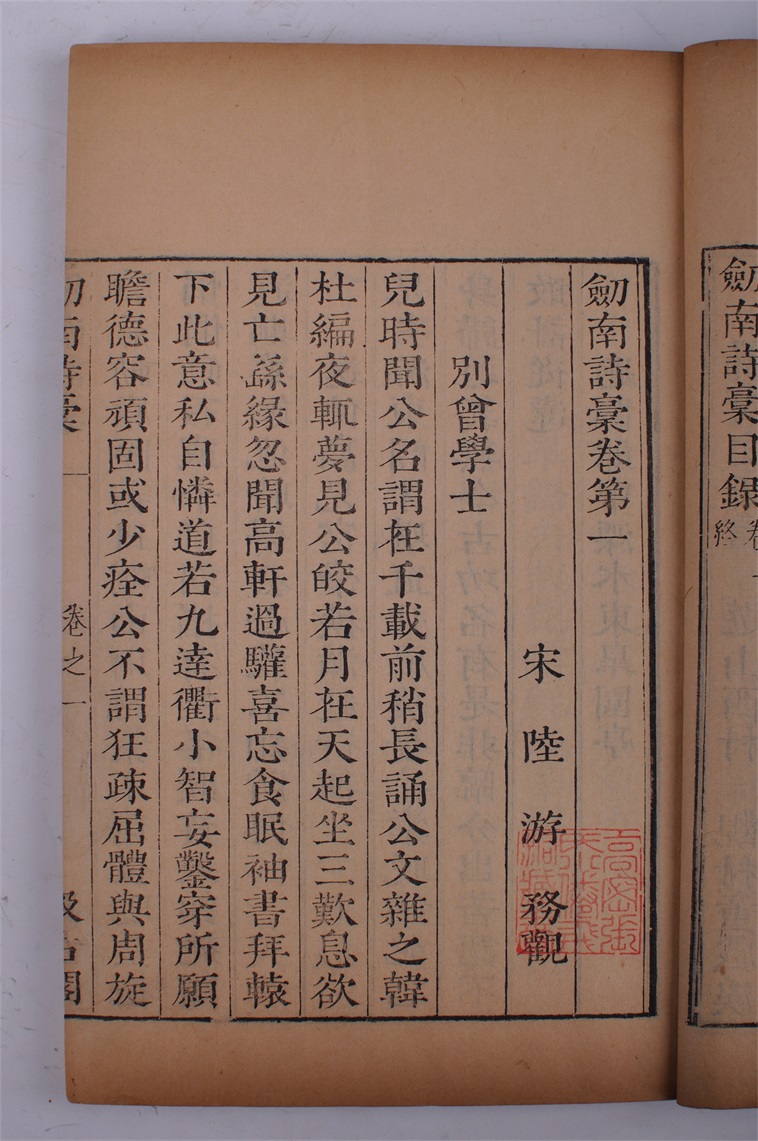 劒南詩稾目錄
劒南詩稾卷第一
宋 陸 游 務觀
別曾學士
兒時聞公名謂在千載前稍長誦公文雜之韓
杜編夜輒夢見公皎若月在天起坐三歎息欲
見亡繇緣忽聞高軒過驩喜忘食眠袖書拜轅
下此意私自憐道若九逵衢小智妄鑿穿所願
瞻德容頑固或少痊公不謂狂疎屈體與周旋
劒南詩稾 卷之一 汲古閣